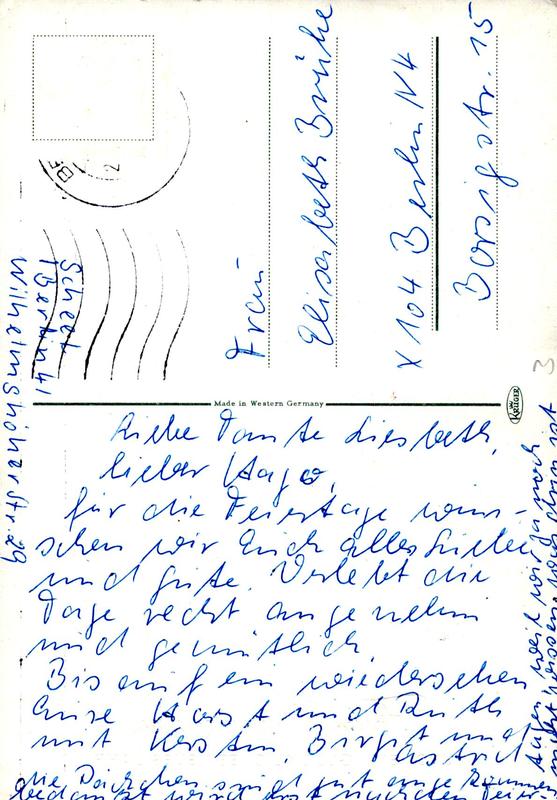 Frau
Elisabeth Brühe
X 104 Berlin N4
Borsigstr. 15
Scheel
1 Berlin 41
Wilhelmshöherstr. 29
BE
2
3
Made in Western Germany
KRÜGER
Liebe Tante Liesbeth,
lieber Hugo,
für die Feiertage wün-
schen wir Euch alles Liebe
und Gute. Verlebt die
Tage recht angenehm
und gemütlich.
Bis auf ein wiedersehen
Eure Horst und Ruth
mit Kerstin, Birgit und
Astrid
die Päckchen sind gut angekommen
bedankt wird erst nach den
weil wir ja noch
nicht wissen, was drin ist